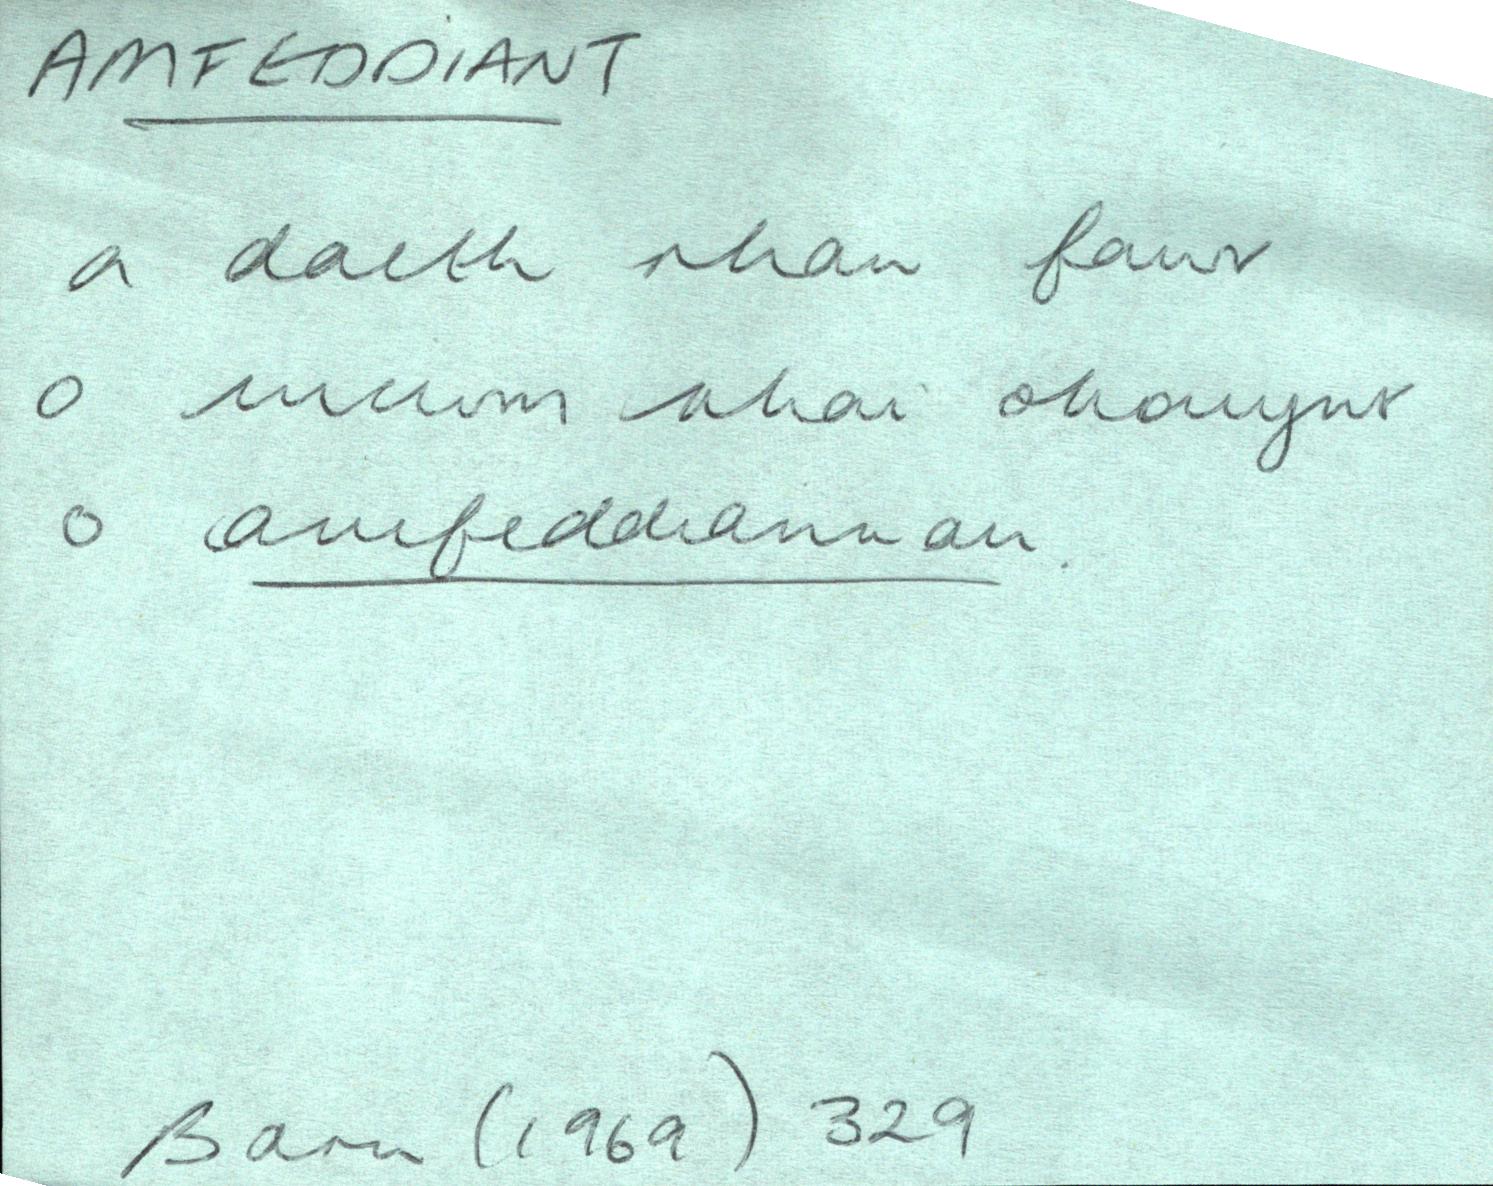 AMFEDDIANT
a daeth rhan fawr
o incwm rhai ohonynt
o amfeddiannau.
Barn (1969) 329